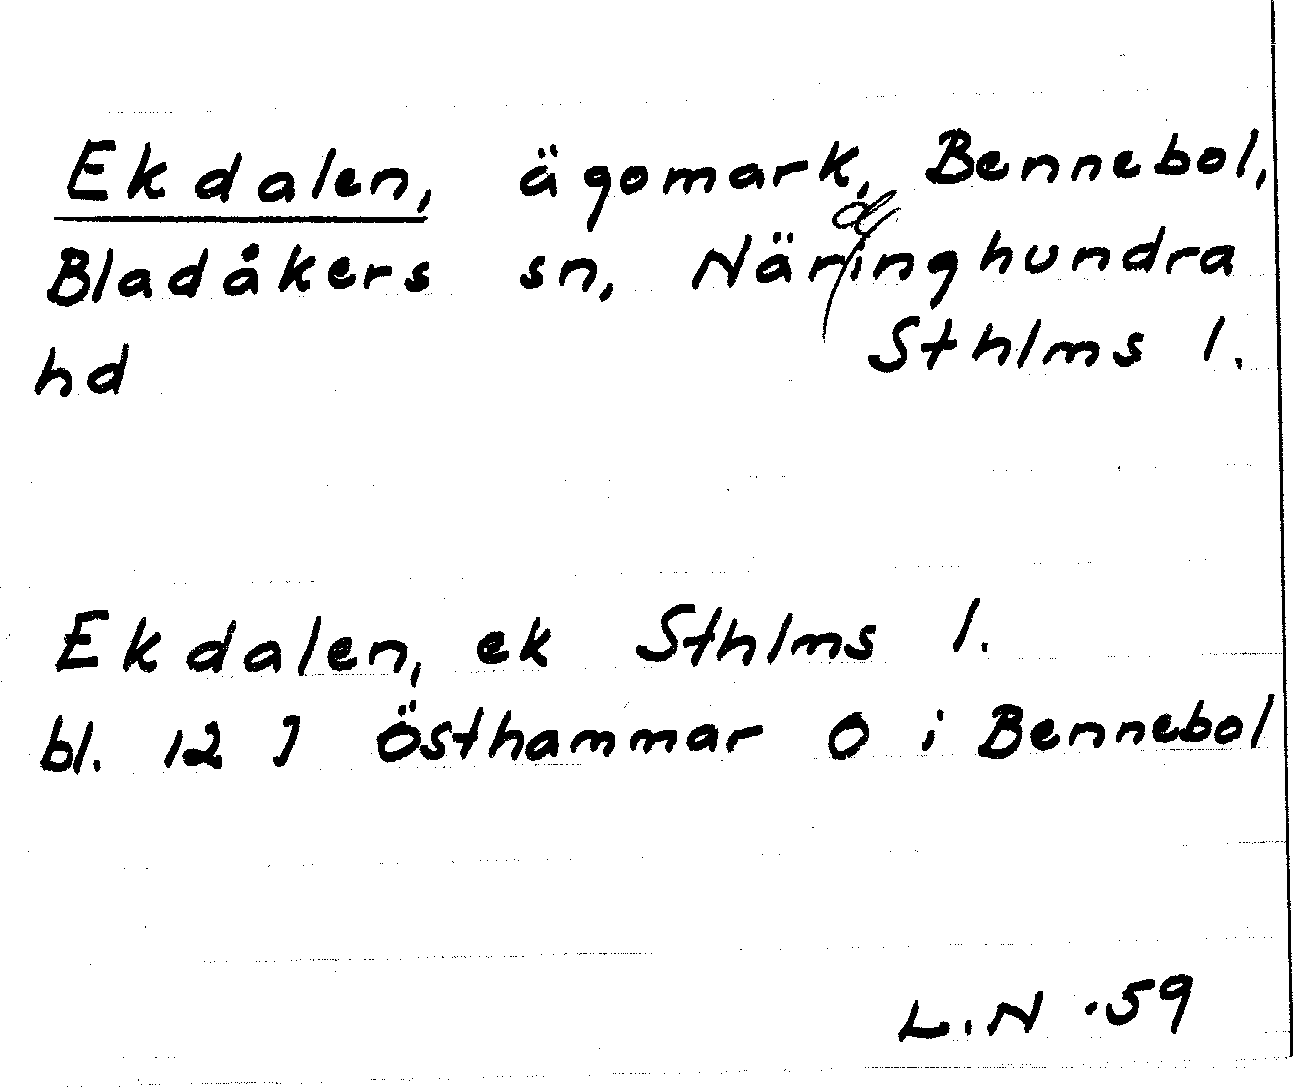 Ekdalen, ägomark, Bennebol,
Bladåkers sn, Närdinghundra
hd Sthlms l.
Ekdalen, ek Sthlms l.
bl. 12 J Östhammar O i Bennebol
L.N. 59